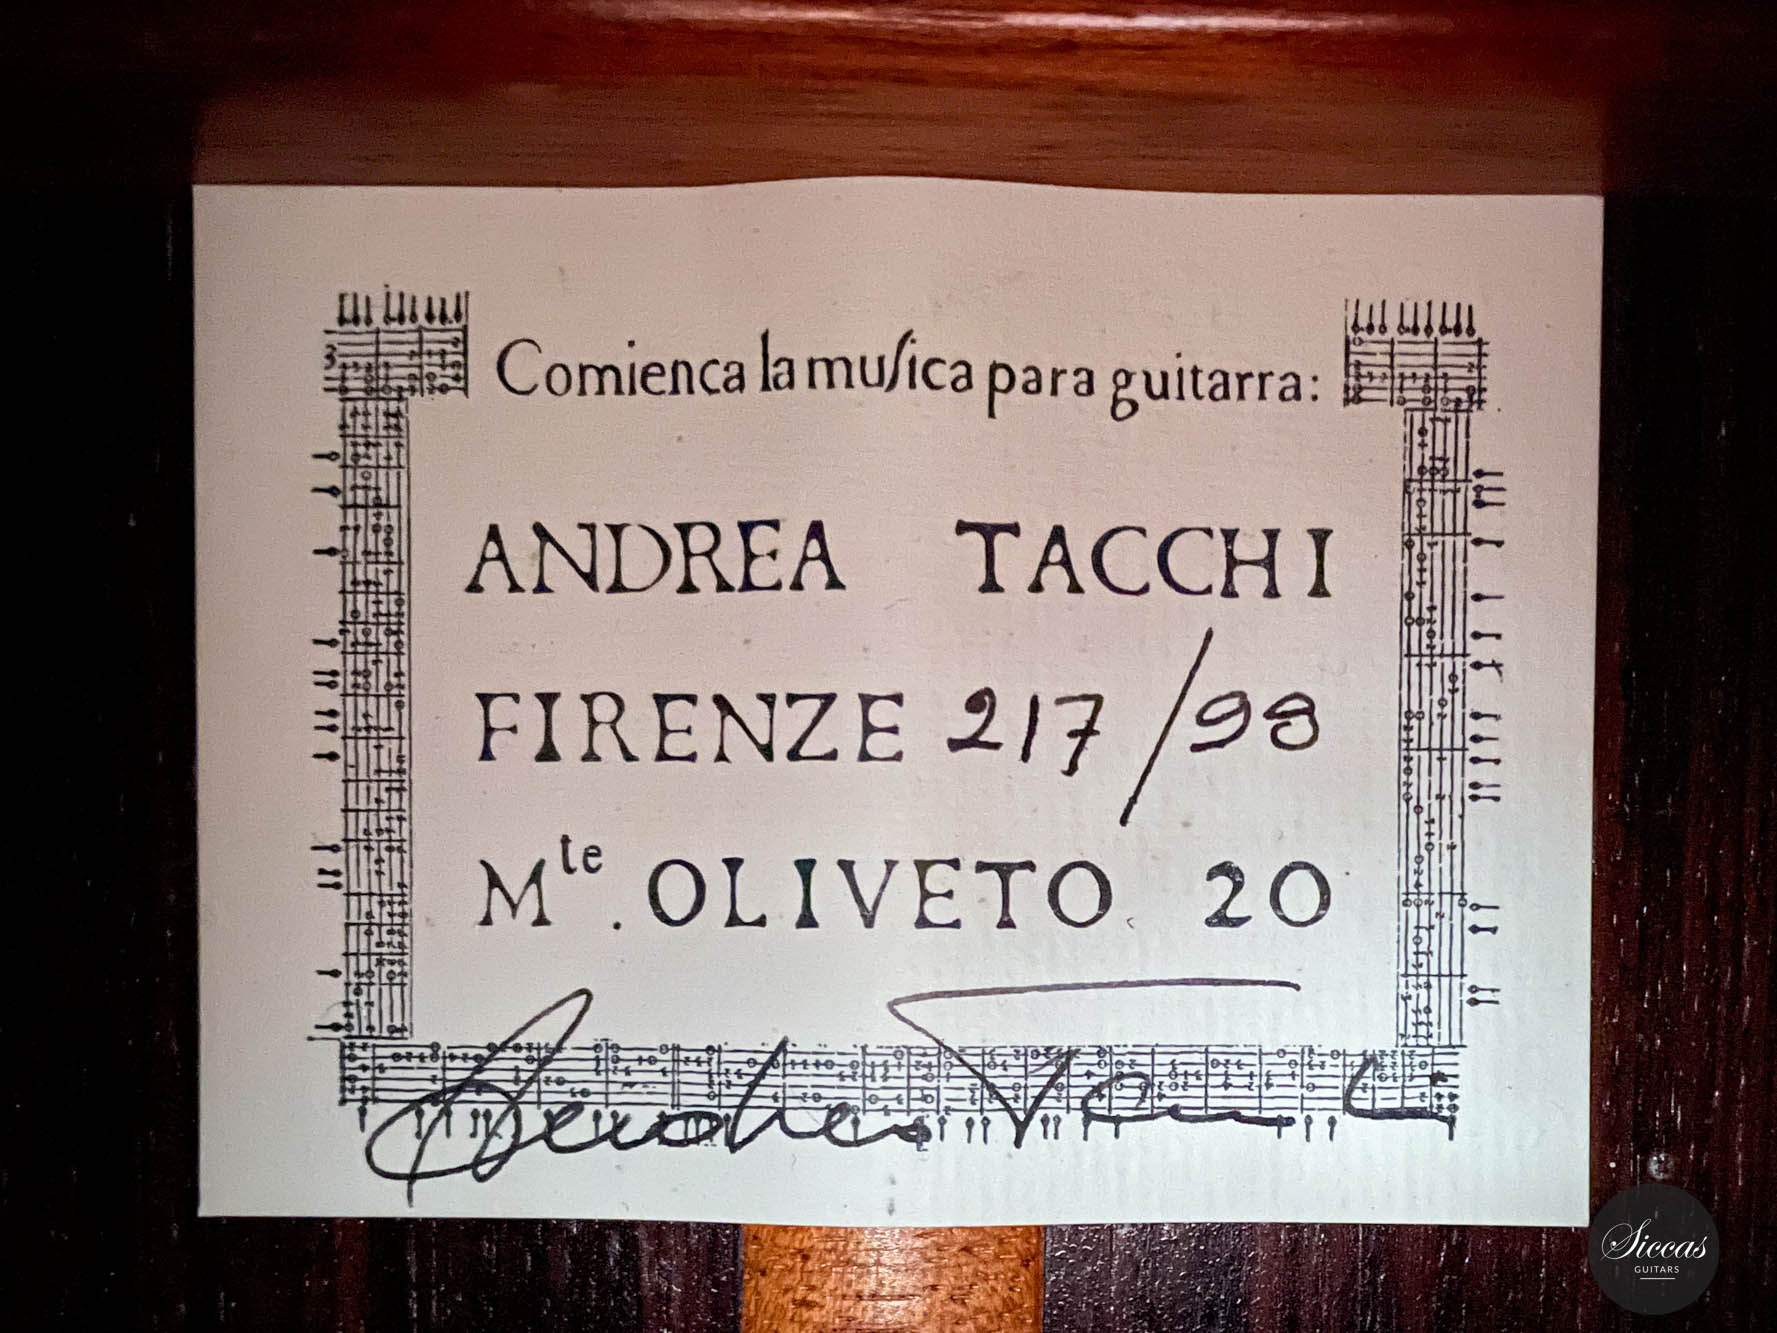 Comienca la muſica para guitarra:
ANDREA TACCHI
FIRENZE 217/98
Mte. OLIVETO 20
Andrea Tacchi
Siccas
GUITARS